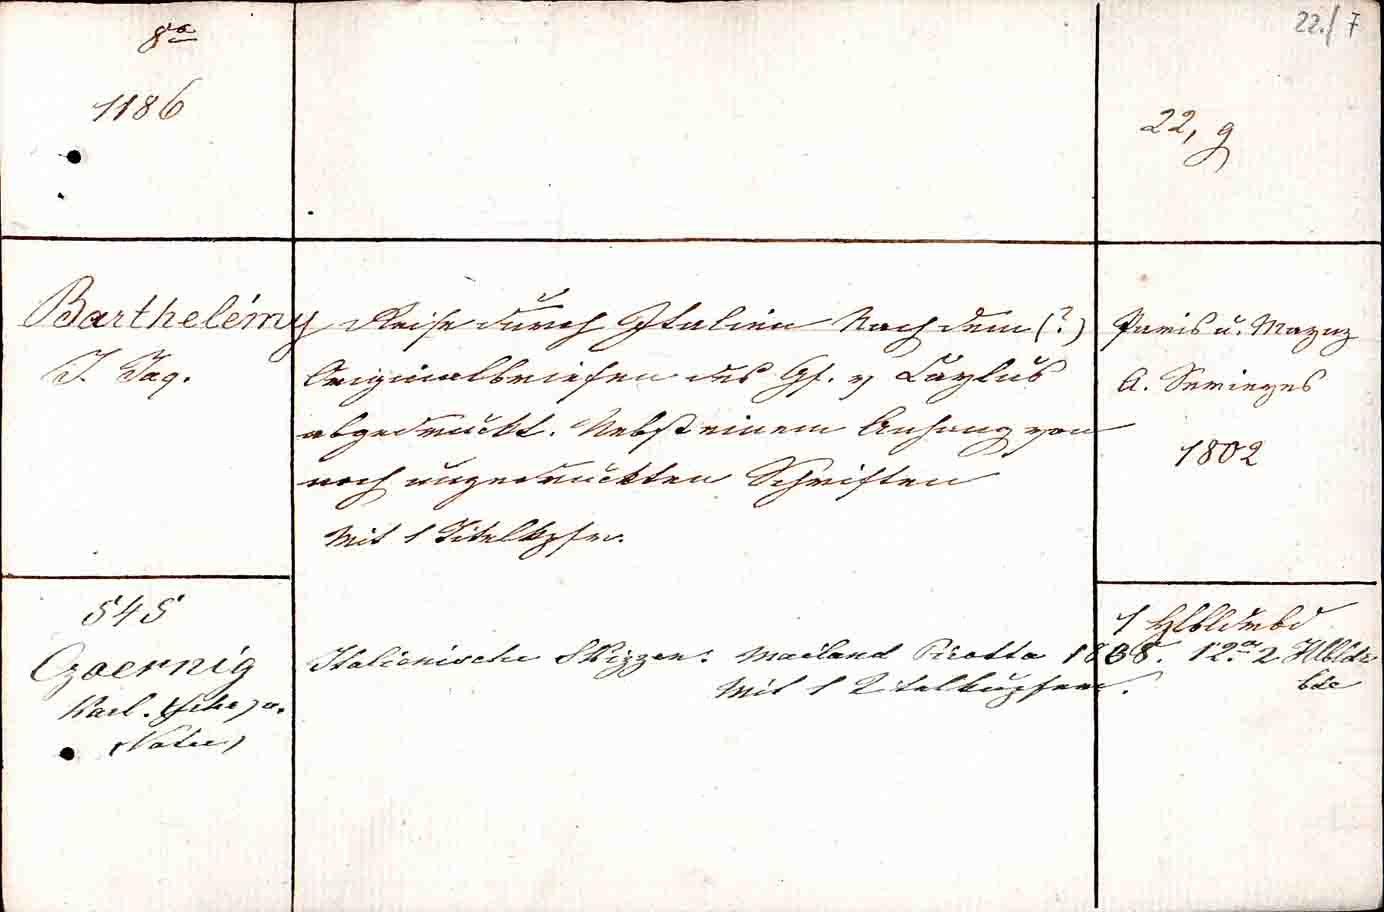 22./7
8°
1186
22, g
Barthelémy
J. Jaq.
Reise durch Italien Nach dem (?)
Originalbriefen des Gf. v Caylus
abgedruckt. Nebst einem Anhang von
noch ungedruckten Schriften
Mit 1 Titelkpfer.
Paris u. Maynz
A.
1802
1 Hlbldrbd
545
Czoernig
Karl.
(Vater)
Italienische Skizzen. Mailand Pirotta 1838. 12° 2 Hlbldr
bde
Mit 1 Titelkupfer.